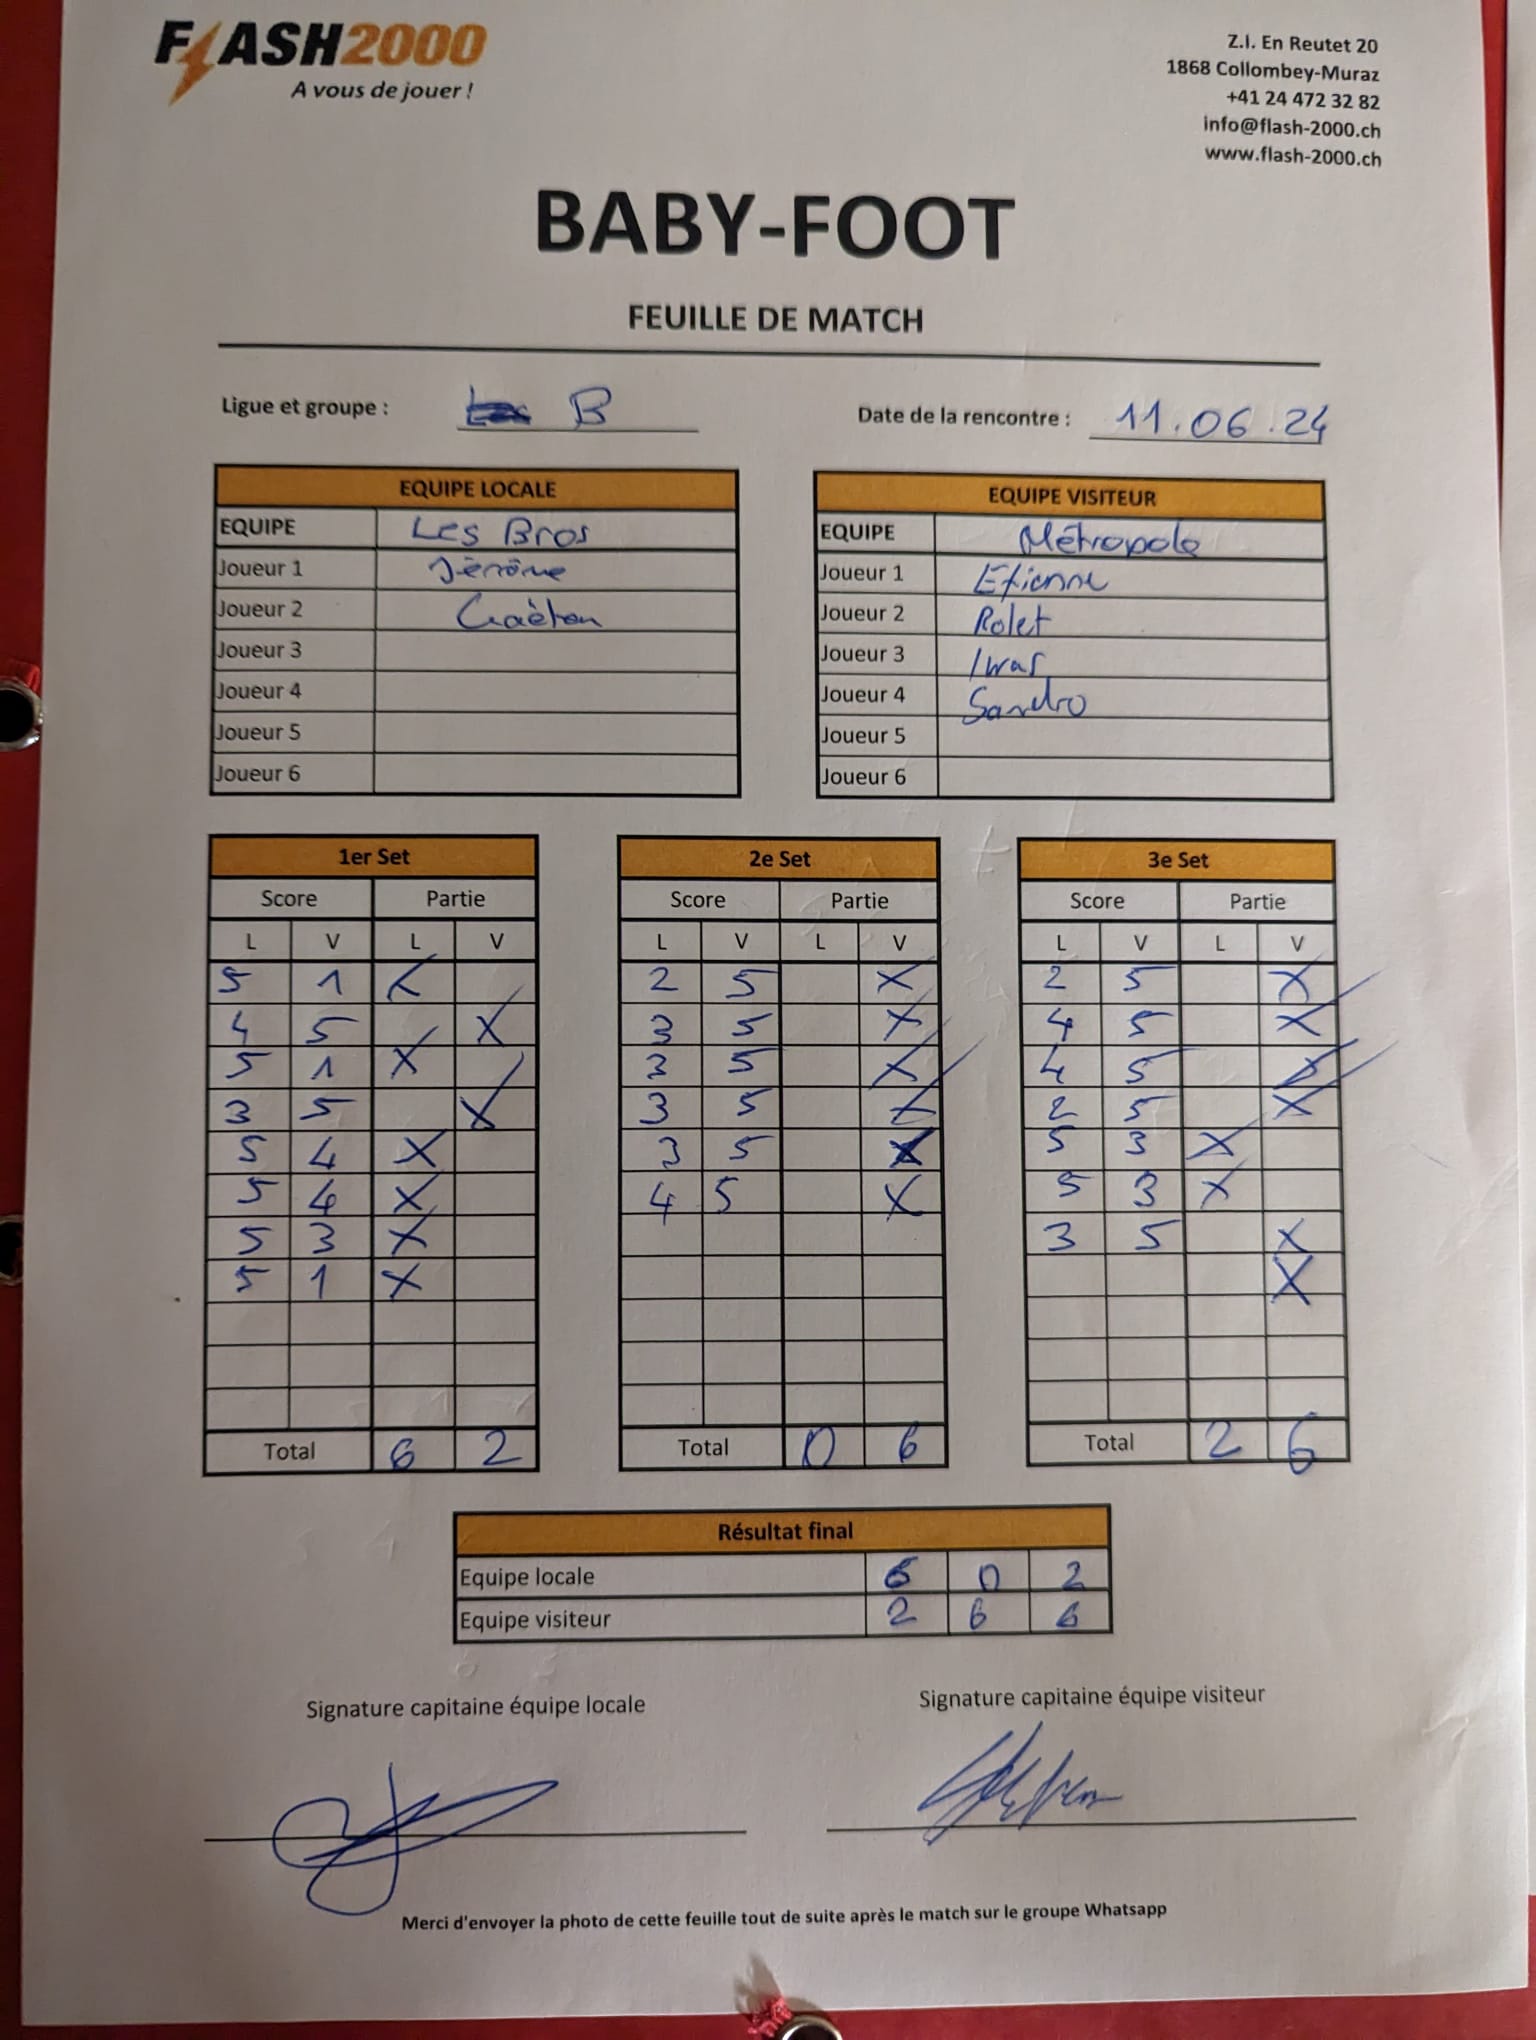 FLASH2000
A vous de jouer !
Z.I. En Reutet 20
1868 Collombey-Muraz
+41 24 472 32 82
info@flash-2000.ch
www.flash-2000.ch
BABY-FOOT
FEUILLE DE MATCH
Ligue et groupe : B
Date de la rencontre : 11.06.24
EQUIPE LOCALE
EQUIPE Les Bros
Joueur 1 Jérôme
Joueur 2 Gaëtan
Joueur 3
Joueur 4
Joueur 5
Joueur 6
EQUIPE VISITEUR
EQUIPE Métropole
Joueur 1 Etienne
Joueur 2 Rolet
Joueur 3
Joueur 4 Sandro
Joueur 5
Joueur 6
1er Set
Score Partie
L V L V
5 1 X
4 5 X
5 1 X
3 5 X
5 4 X
5 4 X
5 3 X
5 1 X
Total 6 2
2e Set
Score Partie
L V L V
2 5 X
3 5 X
2 5 X
3 5 X
3 5 X
4 5 X
Total 0 6
3e Set
Score Partie
L V L V
2 5 X
4 5 X
4 5 X
2 5 X
5 3 X
5 3 X
3 5 X
X
Total 2 6
Résultat final
Equipe locale 6 0 2
Equipe visiteur 2 6 6
Signature capitaine équipe locale
Signature capitaine équipe visiteur
Merci d'envoyer la photo de cette feuille tout de suite après le match sur le groupe Whatsapp